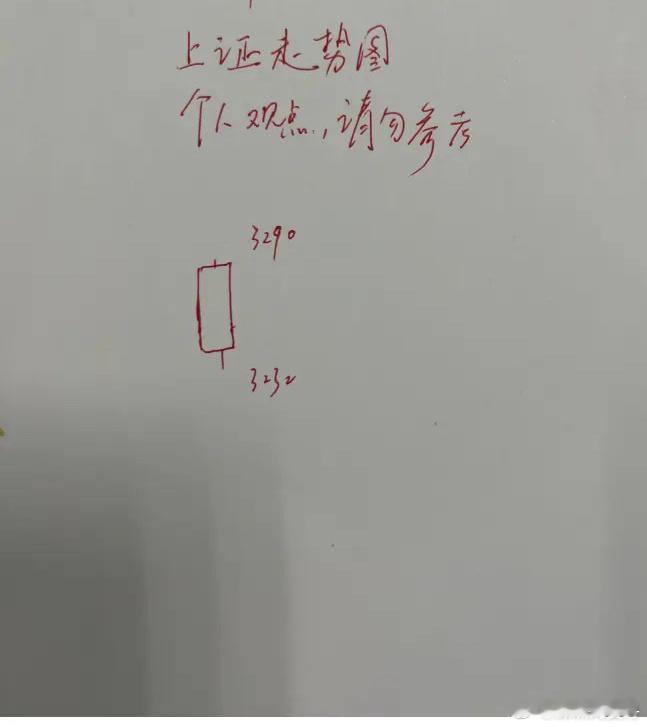 上证走势图
个人观点，请勿参考
3290
3232